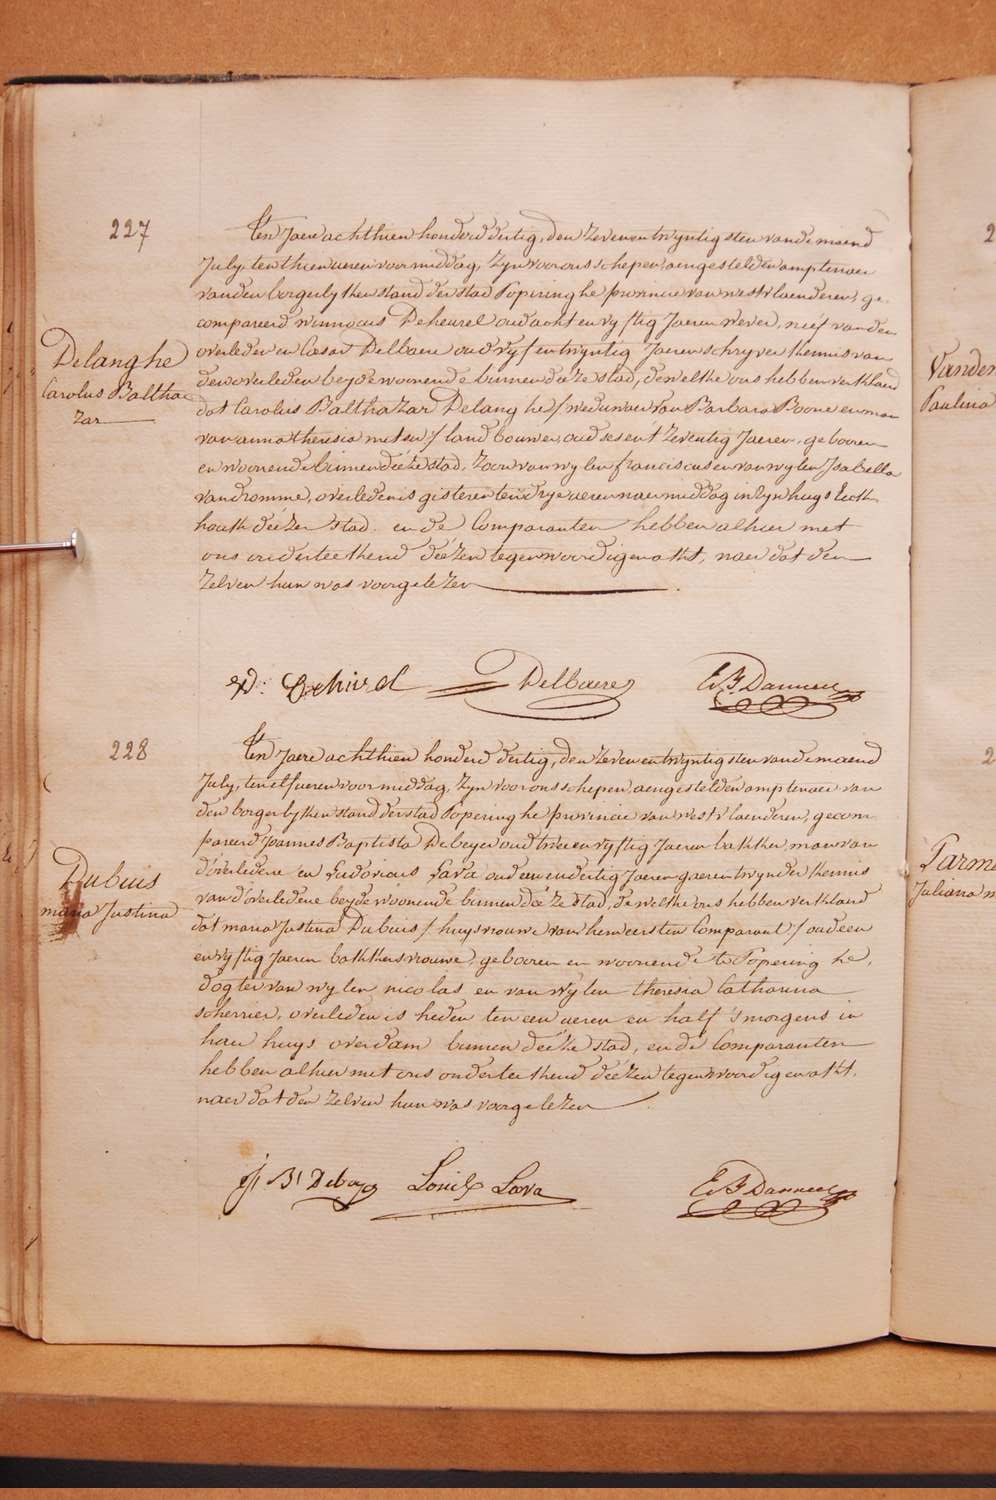 227
Ten Jaere achthien honderd dertig, den zevenentwyntigsten vande maend
July, ten thien ueren voormiddag, Zyn voor ons schepen, aengestelden amptenaer
van den borgerlyken stand der stad Poperinghe provincie van westvlaenderen, ge-
compareerd winnocus Deheurel oud acht en vyftig Jaeren wever, neéf van den
Delanghe
Carolus Baltha
zar
overleden en Cæsar Delbaere oud vyf en twyntig Jaeren schryver kennis van
den overleden beyde woonende binnen deéze stad, dewelke ons hebben verklaerd
dat Carolus Balthazar Delanghe / weduwaer van Barbara Boone en man
van anna theresia / landbouwer, oud ses en t'zeventig Jaeren, gebooren
en woonende binnen deéze stad, zoon van wylen franciscus en van wylen Isabella
vandromme, overleden is gisteren ten dry ueren naermiddag in zyn huys
houk deézer stad. en de Comparanten hebben alhier met
ons onderteekend deézen tegenwoordigen akt, naer dat den
zelven hun was voorgelezen
Delbaere
228
Ten Jaere achthien honderd dertig, den zevenentwyntigsten vande maend
July, ten elf ueren voormiddag, Zyn voor ons schepen, aengestelden amptenaer van
den borgerlyken stand der stad Poperinghe provincie van westvlaenderen, gecom
pareerd Joannes Baptista Debeyer oud twee en vyftig Jaeren bakker, man van
Dubuis
maria Justina
d'overledene en Ludovicus Lava oud een en dertig Jaeren kennis
van d'overledene beyde woonende binnen deéze stad, dewelke ons hebben verklaerd
dat maria Justina Dubuis / huysvrouwe van hem eersten Comparant / oud een
en vyftig Jaeren bakkersvrouwe, gebooren en woonende te Poperinghe,
dogter van wylen nicolas en van wylen theresia Catharina
scherrier, overleden is heden ten een ueren en half 's morgens in
haer huys overdam binnen deéze stad, en de Comparanten
hebben alhier met ons onderteekend deézen tegenwoordigen akt,
naer dat den zelven hun was voorgelezen
Louis Lava
Vanden
Paulina
Juliana